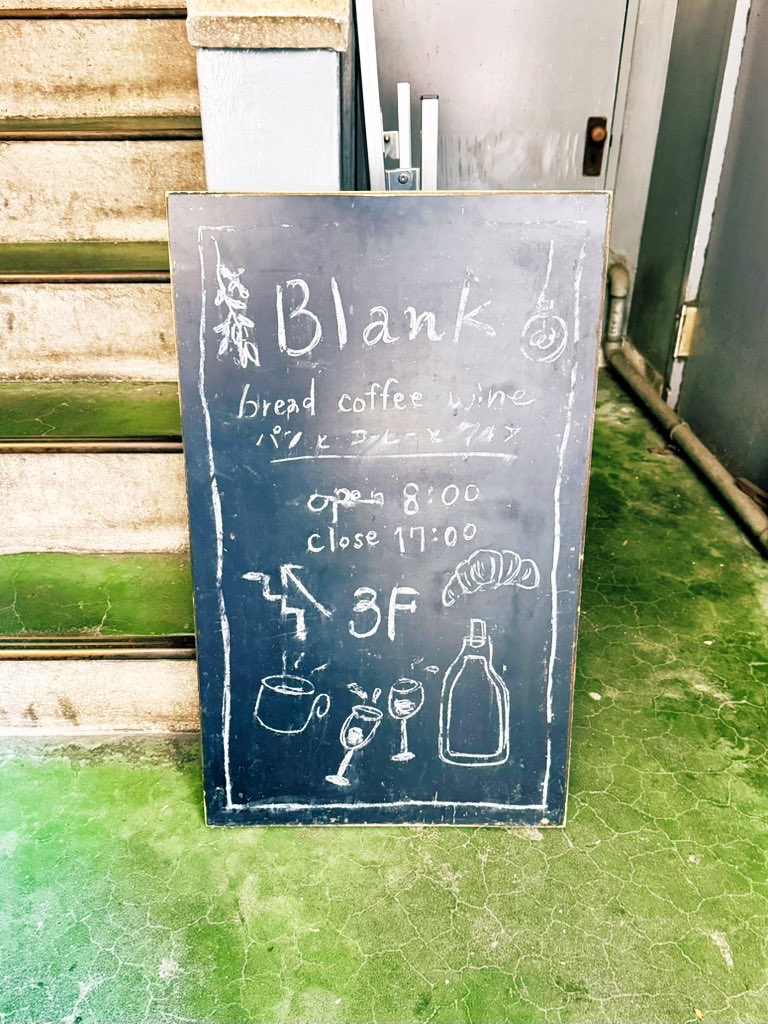 Blank
bread coffee wine
パンとコーヒーとワイン
open 8:00
close 17:00
3F